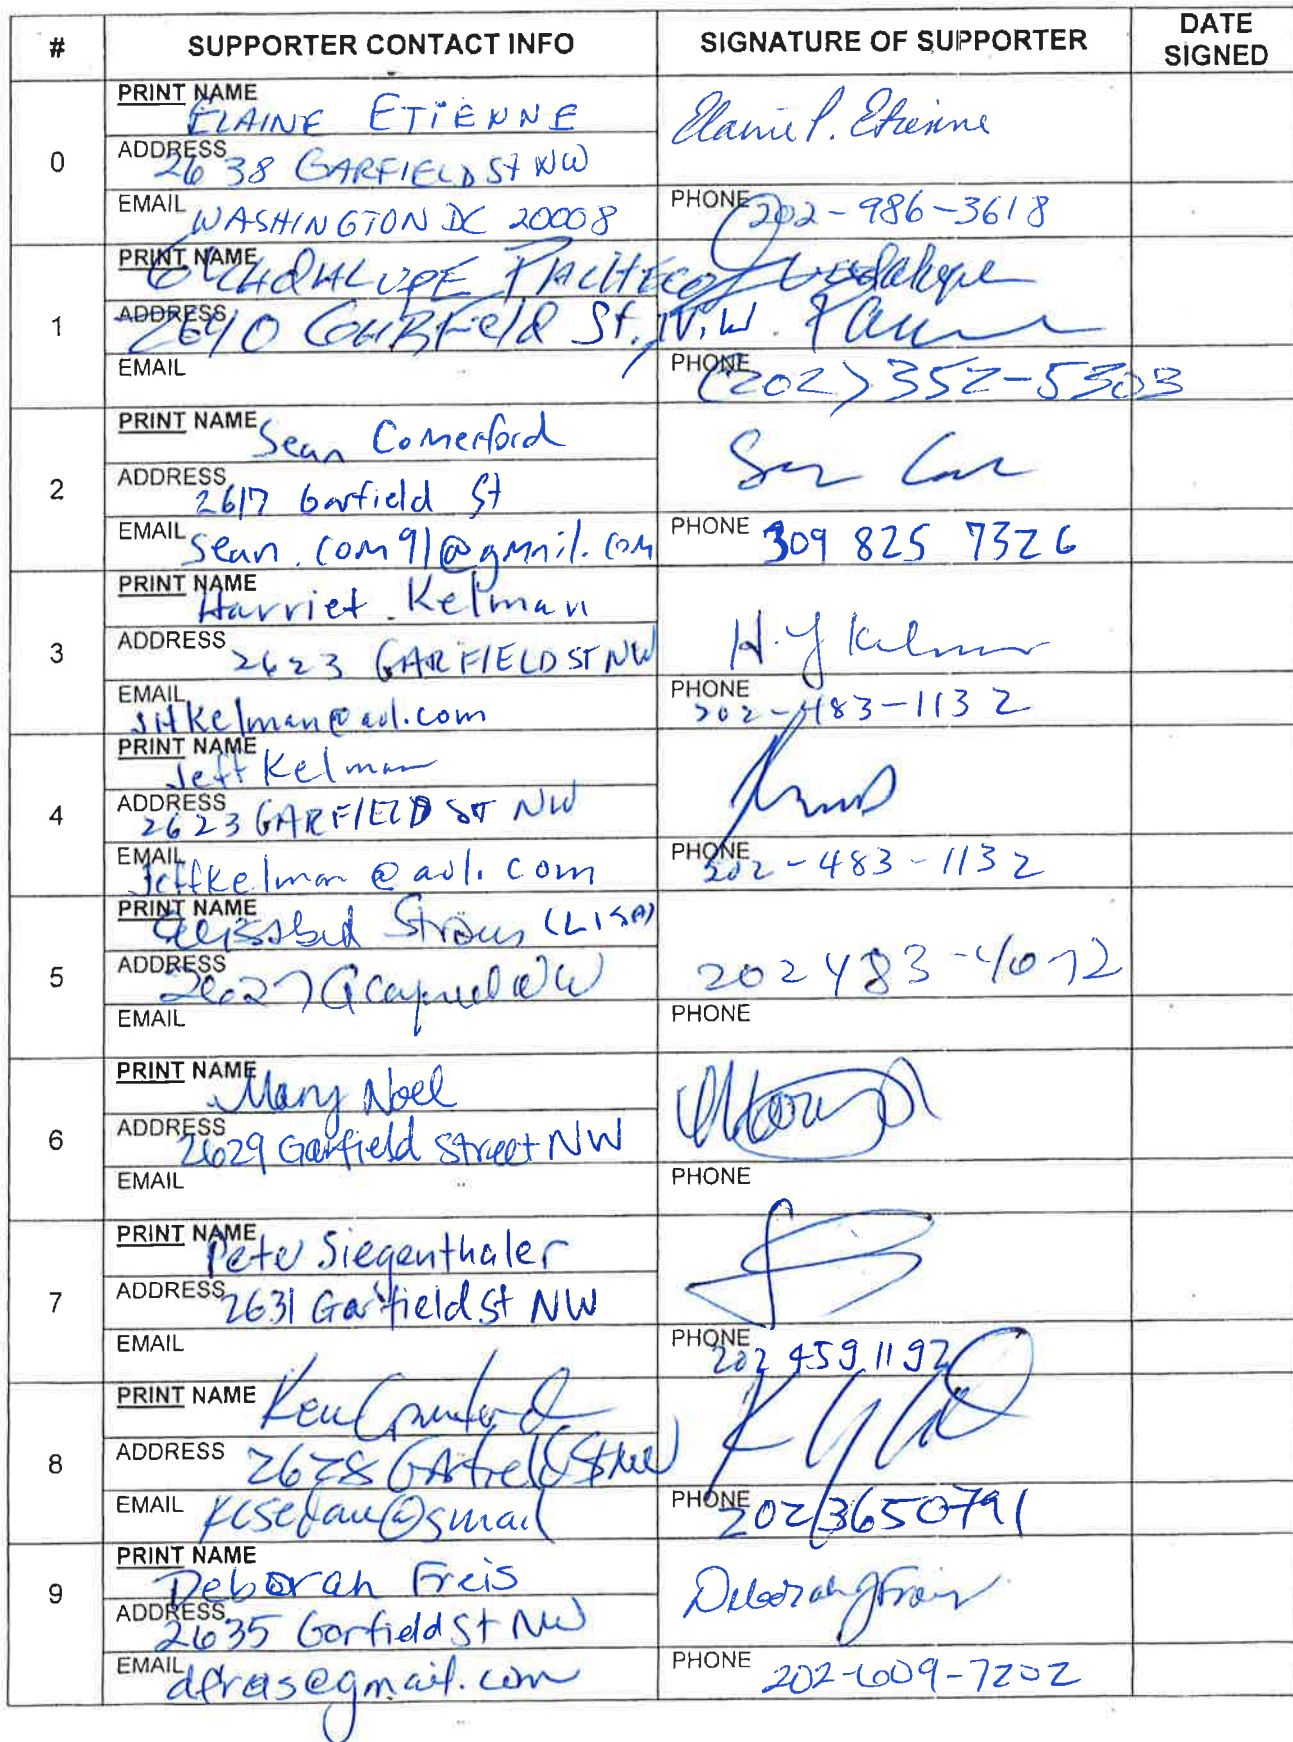 # SUPPORTER CONTACT INFO SIGNATURE OF SUPPORTER DATE SIGNED
0
PRINT NAME ELAINE ETIENNE
Elaine P. Etienne
ADDRESS 2638 GARFIELD St NW
EMAIL WASHINGTON DC 20008
PHONE 202-986-3618
1
PRINT NAME GUADALUPE PACHECO
Guadalupe
ADDRESS 2640 Garfield St. N.W.
EMAIL
PHONE (202) 352-5303
2
PRINT NAME Sean Comerford
ADDRESS 2617 Garfield St
EMAIL sean.com91@gmail.com
PHONE 309 825 7326
3
PRINT NAME Harriet Kelman
H. J Kelman
ADDRESS 2623 GARFIELD ST NW
EMAIL jHKelman@aol.com
PHONE 202-483-1132
4
PRINT NAME Jeff Kelman
ADDRESS 2623 GARFIELD ST NW
EMAIL Jeffkelman@aol.com
PHONE 202-483-1132
5
PRINT NAME Straus (LISA)
202 483-4072
ADDRESS 2627 NW
EMAIL
PHONE
6
PRINT NAME Mary Noel
ADDRESS 2629 Garfield Street NW
EMAIL
PHONE
7
PRINT NAME Pete Siegenthaler
ADDRESS 2631 Garfield St NW
EMAIL
PHONE 202 459 1192
8
PRINT NAME Ken Crawford
ADDRESS Garfield St NW
EMAIL
PHONE 202/3650791
9
PRINT NAME Deborah Freis
ADDRESS 2635 Garfield St NW
EMAIL dfreis@gmail.com
PHONE 202-609-7202